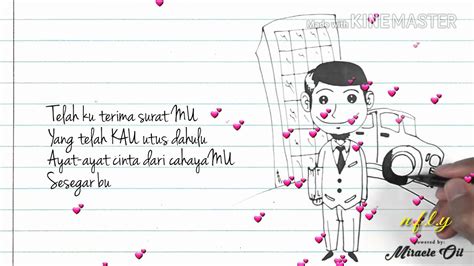 Made with KINEMASTER
Telah ku terima surat MU
Yang telah KAU utus dahulu
Ayat-ayat cinta dari cahayaMU
Sesegar bu
n.f.l.y
powered by:
Miracle Oil